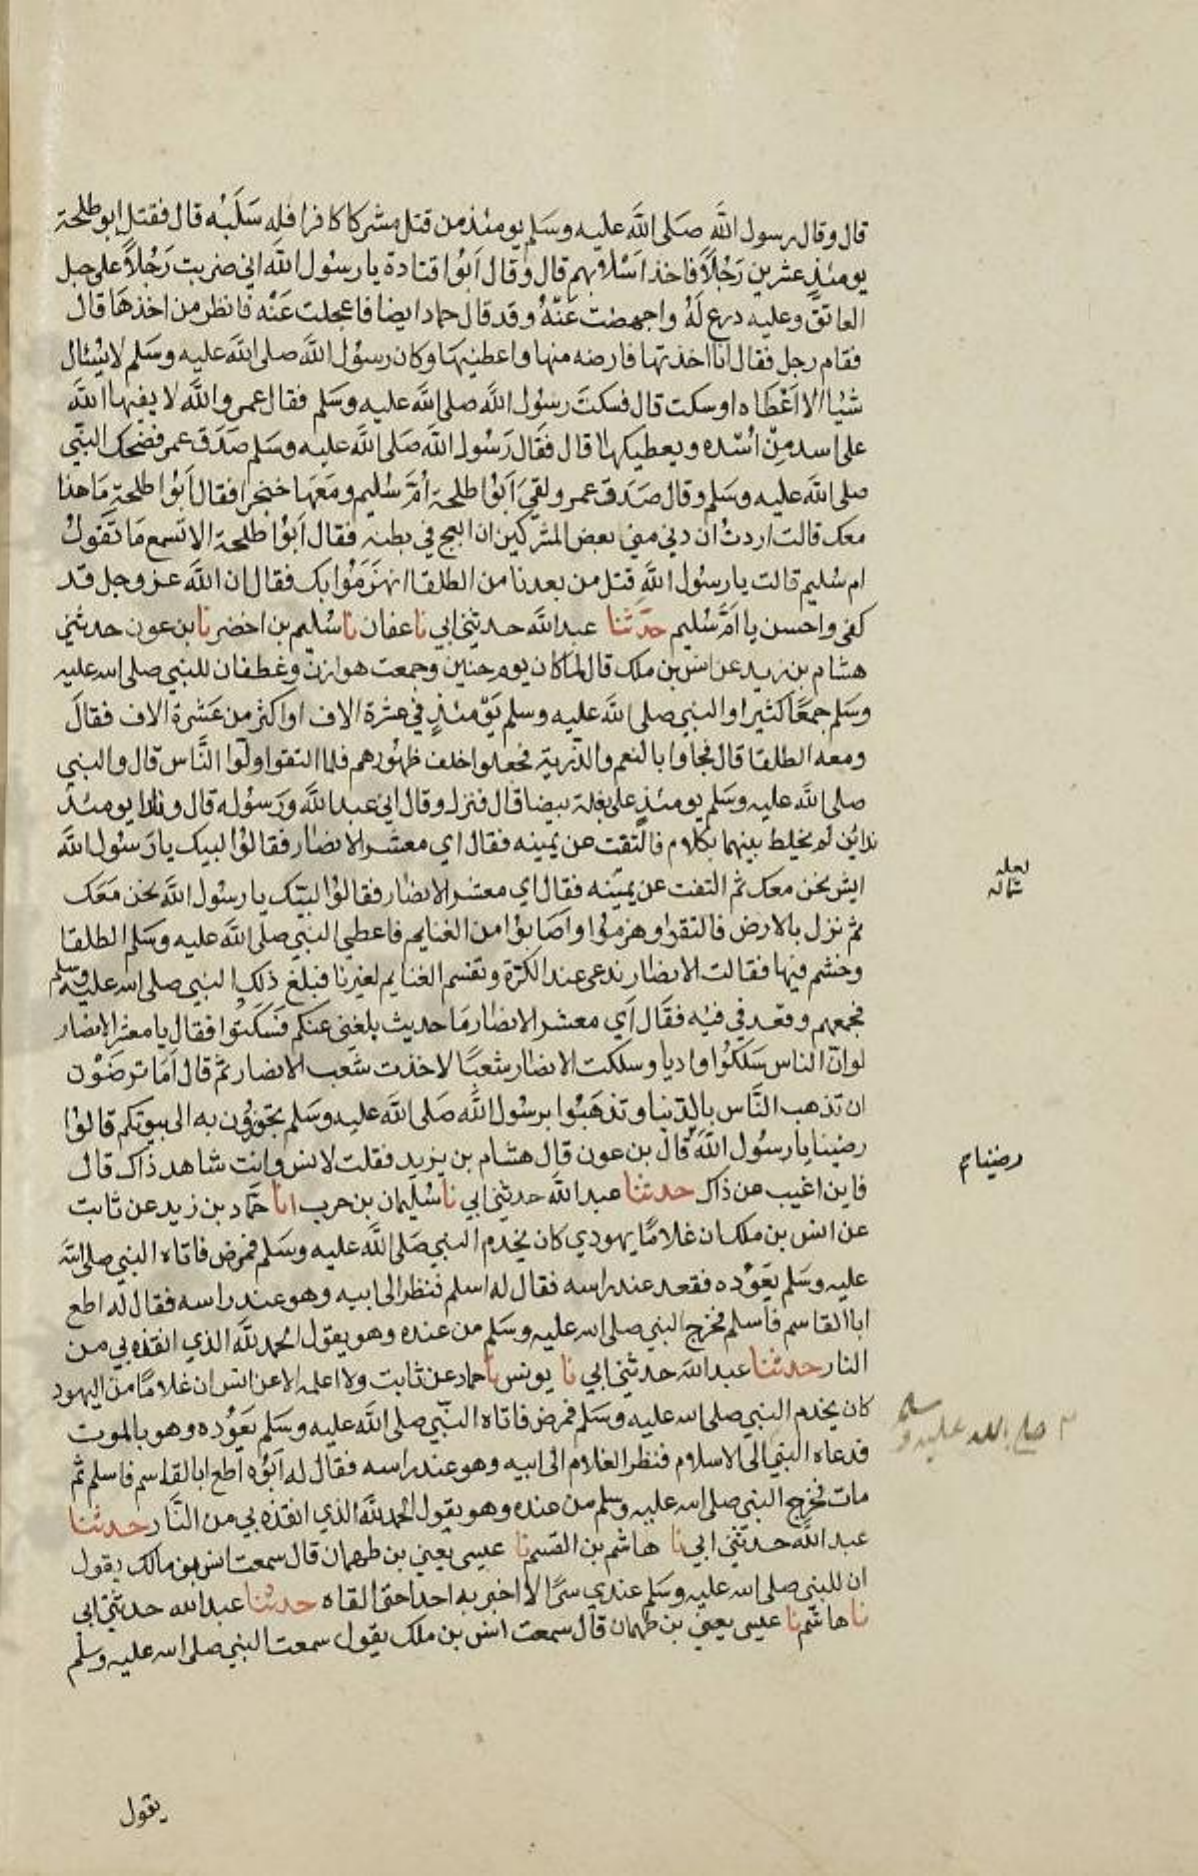 قال وقال رسول الله صلى الله عليه وسلم يومئذ من قتل مشركا كافرا فله سلبه قال فقتل ابو طلحة
يومئذ عشرين رجلا فاخذ اسلابهم قال وقال ابوا قتادة يا رسول الله اني ضربت رجلا على حبل
العاتق وعليه درع له واجهضت عنه وقد قال حماد ايضا فاعجلت عنه فانظر من اخذها قال
فقام رجل فقال انا اخذتها فارضه منها واعطنيها وكان رسول الله صلى الله عليه وسلم لا يسئال
شيا الا اعطاه او سكت قال فسكت رسول الله صلى الله عليه وسلم فقال عمر والله لا يفيها الله
على اسد من اسده ويعطيكها قال فقال رسول الله صلى الله عليه وسلم صدق عمر فضحك النبي
صلى الله عليه وسلم وقال صدق عمر ولقي ابوا طلحة ام سليم ومعها خنجر فقال ابوا طلحة ما هذا
معك قالت اردت ان دني مني بعض المشركين ان ابعج في بطنه فقال ابوا طلحة الا تسمع ما تقول
ام سليم قالت يا رسول الله قتل من بعدنا من الطلقا انهزموا بك فقال ان الله عز وجل قد
كفى واحسن يا ام سليم حدثنا عبد الله حدثني ابي نا عفان نا سليم بن اخضر نا بن عون حدثني
هشام بن زيد عن انس بن ملك قال لما كان يوم حنين وجمعت هوازن وغطفان للنبي صلى الله عليه
وسلم جمعا كثيرا والنبي صلى الله عليه وسلم يومئذ في عشرة الاف او اكثر من عشرة الاف فقال
ومعه الطلقا قال فجاوا بالنعم والذرية فجعلوا خلف ظهورهم فلما التقوا ولوا الناس قال والنبي
صلى الله عليه وسلم يومئذ على بغلة بيضا قال فنزل وقال اني عبد الله ورسوله قال ونادا يومئذ
ندائين لم يخلط بينهما بكلام فالتفت عن يمينه فقال اي معشر الانصار فقالوا لبيك يا رسول الله
ابشر نحن معك ثم التفت عن يمينه فقال اي معشر الانصار فقالوا لبيك يا رسول الله نحن معك
لعله شماله
ثم نزل بالارض فالتقوا وهزموا واصابوا من الغنايم فاعطى النبي صلى الله عليه وسلم الطلقا
وقسم فيها فقالت الانصار ندعى عند الكرة وتقسم الغنايم لغيرنا فبلغ ذلك النبي صلى الله عليه وسلم
فجمعهم وقعد في قبه فقال اي معشر الانصار ما حديث بلغني عنكم فسكتوا فقال يا معشر الانصار
لو ان الناس سلكوا واديا وسلكت الانصار شعبا لاخذت شعب الانصار ثم قال اما ترضون
ان تذهب الناس بالدنيا وتذهبوا برسول الله صلى الله عليه وسلم تحوزون به الى بيوتكم قالوا
رضينا يا رسول الله قال بن عون قال هشام بن يزيد فقلت لانس وانت شاهد ذاك قال
رضينا
فاين اغيب عن ذاك حدثنا عبد الله حدثني ابي نا سليمان بن حرب انا حماد بن زيد عن ثابت
عن انس بن ملك ان غلاما يهودي كان يخدم النبي صلى الله عليه وسلم فمرض فاتاه النبي صلى الله
عليه وسلم يعوده فقعد عند راسه فقال له اسلم فنظر الى ابيه وهو عند راسه فقال له اطع
ابا القاسم فاسلم فخرج النبي صلى الله عليه وسلم من عنده وهو يقول الحمد لله الذي انقذه بي من
النار حدثنا عبد الله حدثني ابي نا يونس نا حماد عن ثابت ولا اعلمه الا عن انس ان غلاما من اليهود
كان يخدم النبي صلى الله عليه وسلم فمرض فاتاه النبي صلى الله عليه وسلم يعوده وهو بالموت
فدعاه النبي الى الاسلام فنظر الغلام الى ابيه وهو عند راسه فقال له ابوه اطع ابا القاسم فاسلم ثم
صلى الله عليه وسلم
مات فخرج النبي صلى الله عليه وسلم من عنده وهو يقول الحمد لله الذي انقذه بي من النار حدثنا
عبد الله حدثني ابي نا هاشم بن القسم نا عيسى يعني بن طهمان قال سمعت انس بن مالك يقول
ان للنبي صلى الله عليه وسلم عندي سرا لا اخبر به احدا حتى القاه حدثنا عبد الله حدثني ابي
نا هاشم نا عيسى يعني بن طهمان قال سمعت انس بن ملك يقول سمعت النبي صلى الله عليه وسلم
يقول